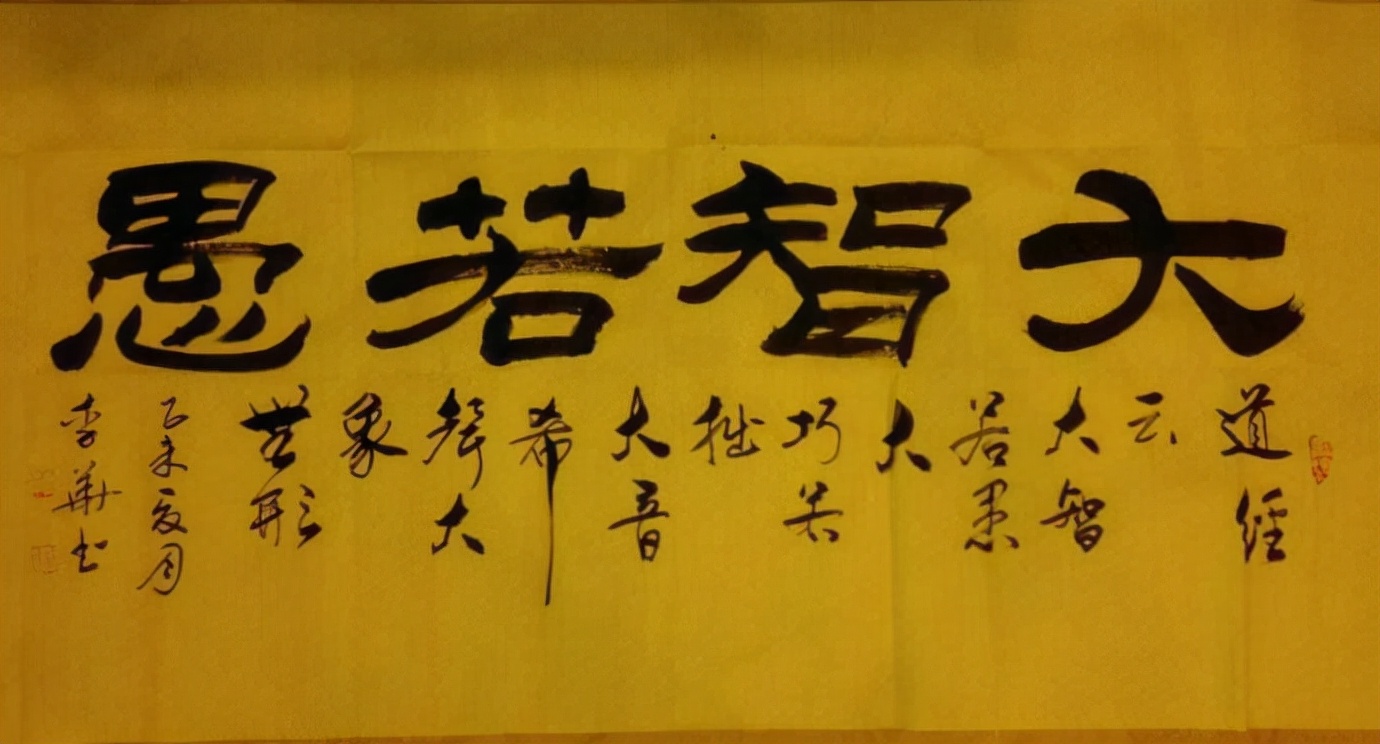 大智若愚
道經
云
大智
若愚
大
巧若
拙
大音
希
聲大
象
無形
乙未夏月
李華书